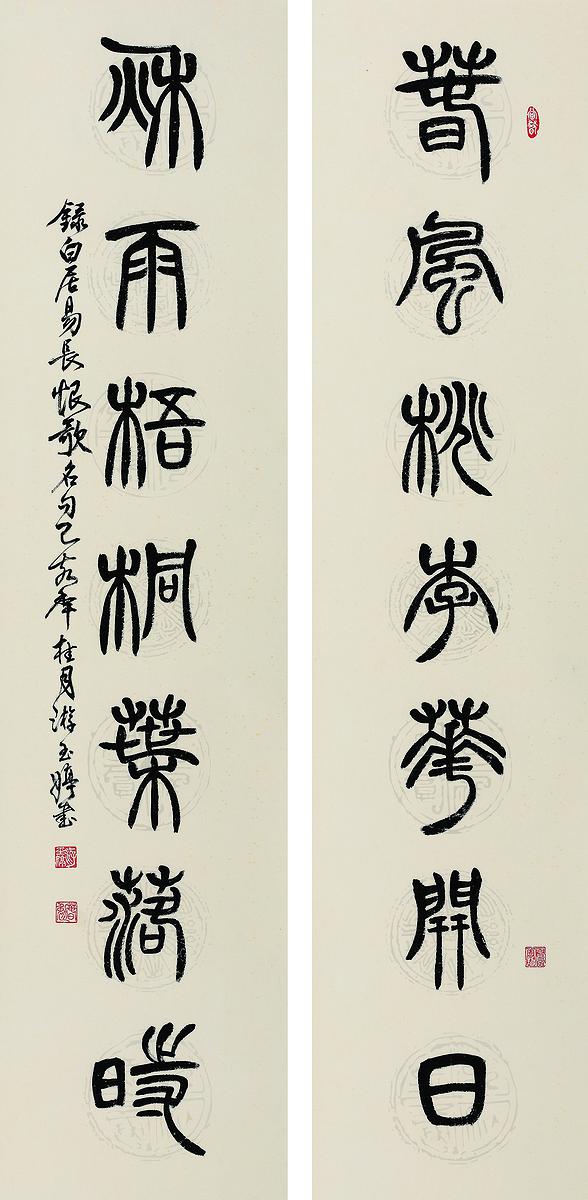 春風桃李華開日
秋雨梧桐葉落時
錄白居易長恨歌名句己亥年桂月游玉婷書